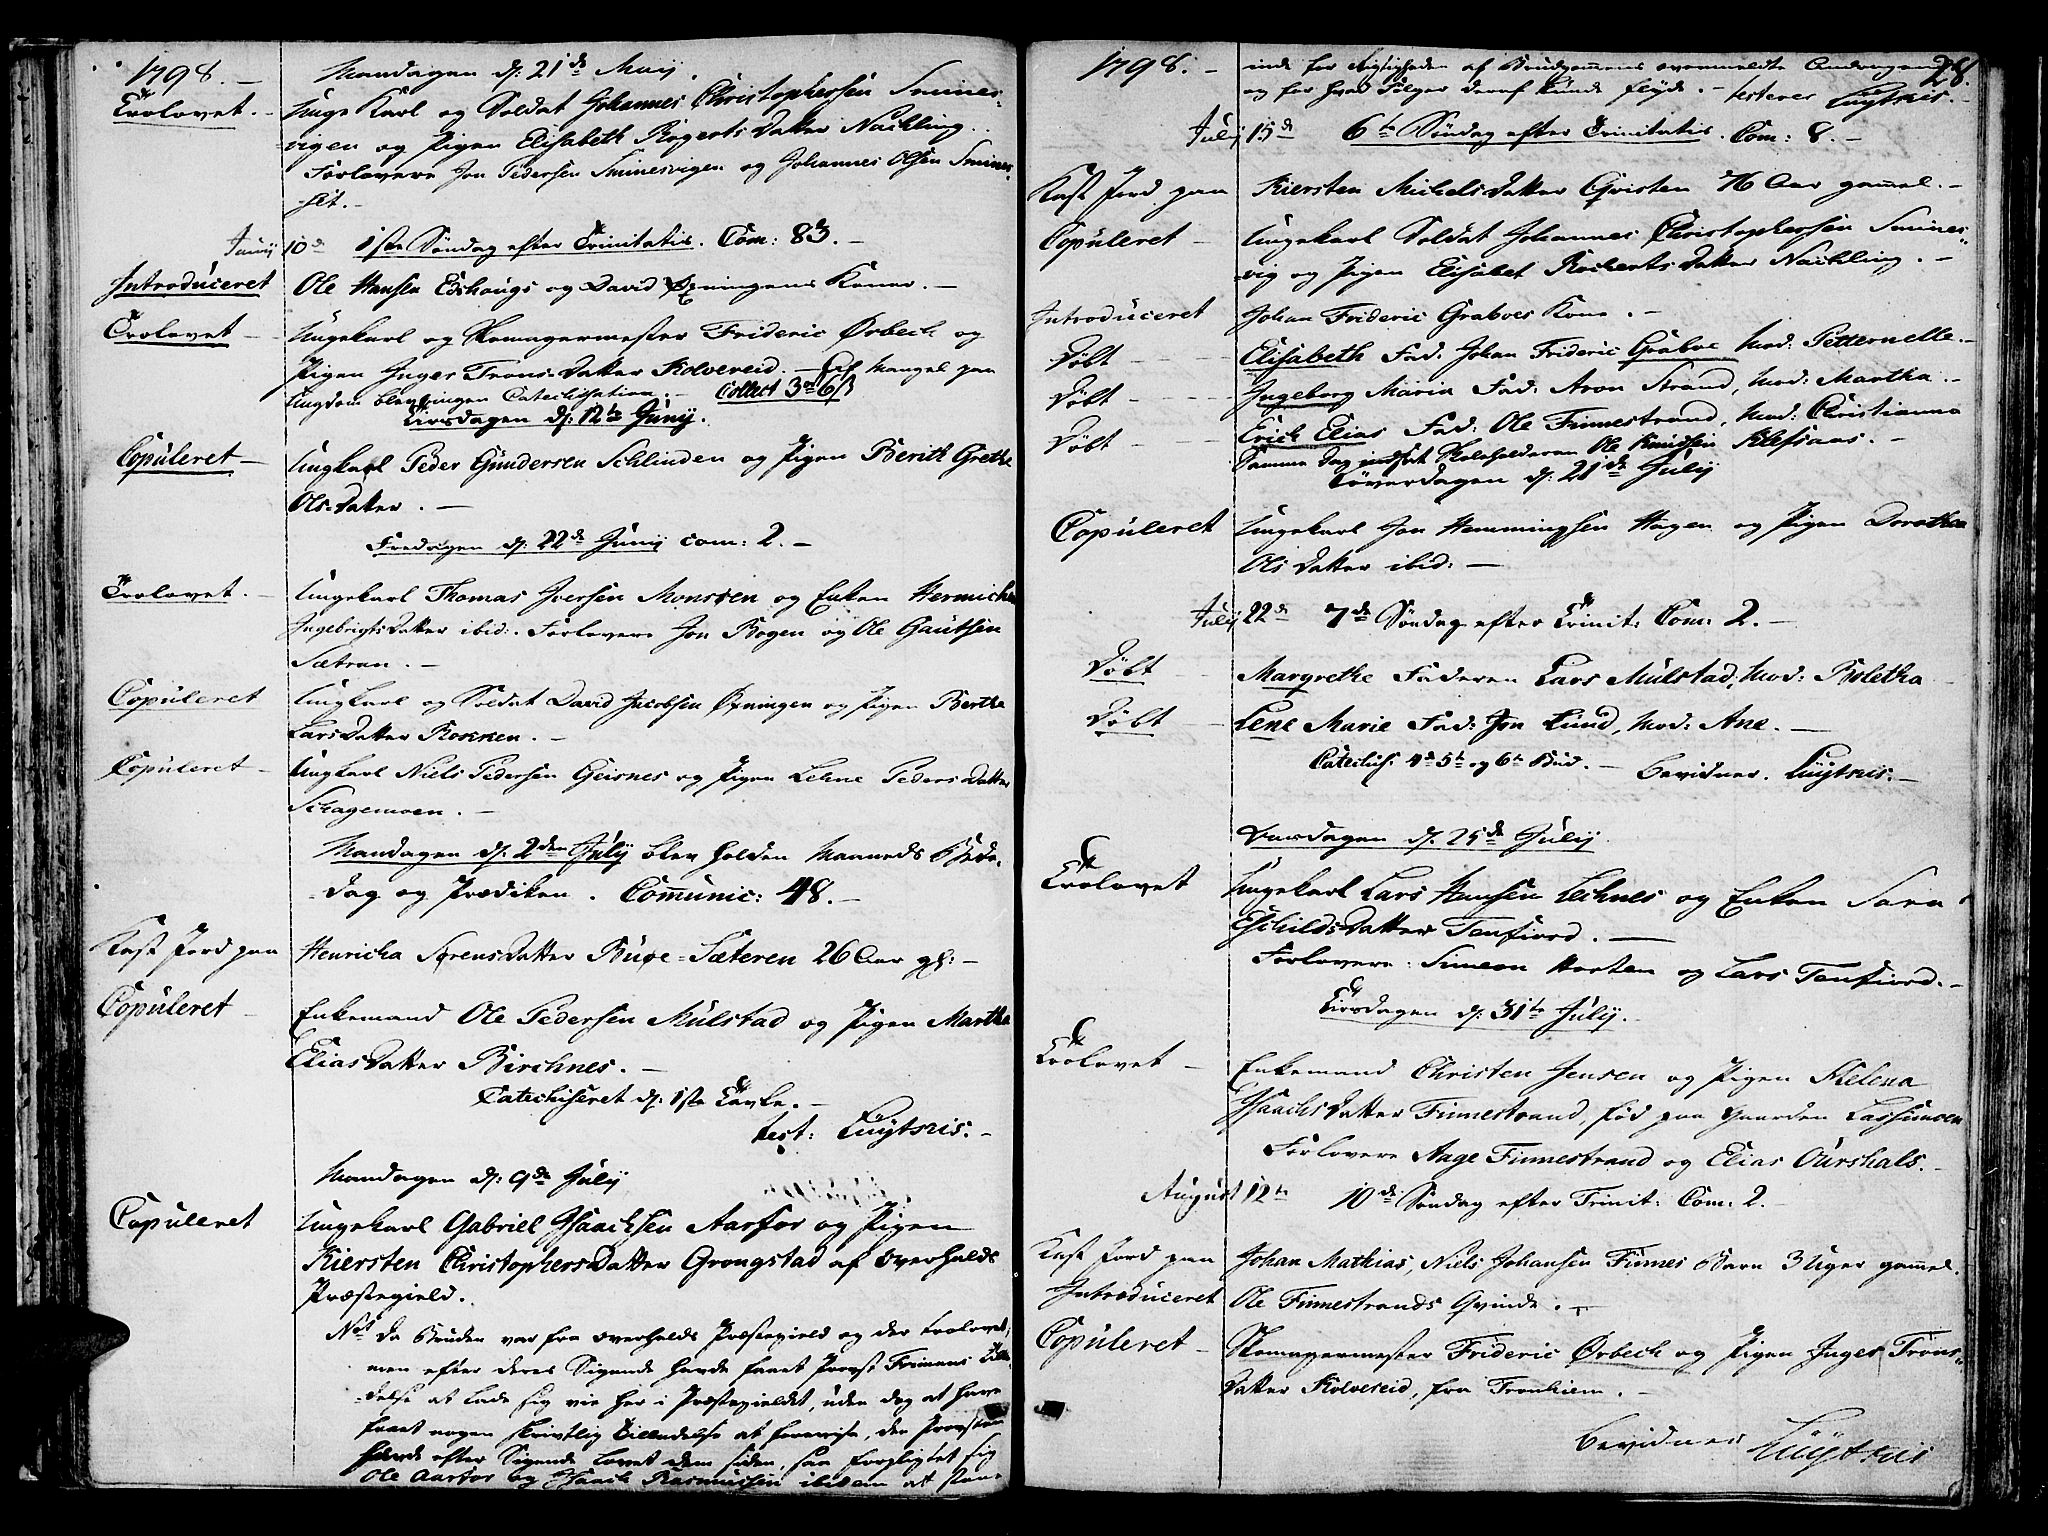 1798. –
Mandagen d: 21de Maij.
Trolovet. – Unge Karl og Soldat Johannes Christophersen Smines-
vigen og Pigen Elisabeth Rogerts Datter Nachling. –
Forlovere Jon Pedersen Sminesvigen og Johannes Olsen Smines-
set. –
Junij 10de 1ste Søndag efter Trinitatis. Com: 83. –
Introduceret Ole Hansen Edshougs og David Øxningens Koner. –
Trolovet – Ungekarl og Skomagermester Frideric Ørbech og
Pigen Inger Trons Datter Kolvereid. – Af Mangel paa
Ungdom blev ingen Catechisation. – Collect 3 6 β
Tirsdagen d: 12te Junij.
Copuleret – Ungkarl Peder Gundersen Schlinden og Pigen Berith Grethe
Ols Datter. –
Fredagen d: 22de Junij com: 2. –
Trolovet. – Ungekarl Thomas Iversen Monssen og Enken Hermicha
Ingebrigts Datter ibid: Forlovere Jon Bogen og Ole Gautsen
Sætran. –
Copuleret Ungkarl og Soldat David Jacobsen Øxningen og Pigen Berthe
Lars Datter Roxxen. –
Copuleret – Ungkarl Niels Pedersen Geisnes og Pigen Lehne Peders Datter
Schagemoen. –
Mandagen d: 2den Julij blev holden Maaneds Bede-
Dag og Prædiken. Communic: 48. –
Kast Jord paa Henricha Sørens Datter Buøe-Sæteren 26 Aar gl: –
Copuleret – Enkemand Ole Pedersen Mulstad og Pigen Martha
Elias Datter Birchnes. –
Catechiseret d: 1ste Tavle. –
test: Luytsris. –
Mandagen d: 9de Julij
Copuleret Ungekarl Gabriel Isaachsen Aarfor og Pigen
Kiersten Christophers Datter Grongstad af Overhalds
Præstegield.
Not: Da Bruden var fra Overhalds Præstegield og der trolovet,
men efter deres Sigende havde faaet Provst Frimans Till-
delse at lade sig vie her i Præstegieldet, uden dog at have
faaet nogen skrivtlig Tilladelse at forevise, den Provsten
havde efter Sigende lovet dem siden, saa forpligtet sig
Ole Aarfor og Isaach Rasmussen ibidem at staae
1798. – 28.
inde for Rigtigheden af Brudgommens ovenmeldte Andragende
og for hvad Følger deraf kunde flyde. – testerer Luytsris. –
Julij 15de 6te Søndag efter Trinitatis. Com: 8. –
Kast Jord paa Kiersten Michels Datter Qvisten 76 Aar gammel. –
Copuleret – Ungekarl Soldat Johannes Christophersen Smines-
vig og Pigen Elisabet Rocherts Datter Nachling. –
Introduceret Johan Frideric Graboes Kone. –
Døbt – Elisabeth Fad: Johan Frideric Graboe Mod: Petternelle. –
Døbt – Ingeborg Maria Fad: Aron Strand, Mod: Martha. –
Døbt – Erich Elias Fad: Ole Finnestrand, Mod: Christianna
Samme Dag indsat Skoleholderen Ole Knutsen Klefsaas. –
Løverdagen d: 21de Julij
Copuleret Ungekarl Jon Hemmingsen Hagen og Pigen Dorothea
Ols Datter ibid: –
Julij 22de 7de Søndag efter Trinit: Com: 2. –
Døbt – Margrethe Faderen Lars Mulstad, Mod: Boletha –
Døbt – Lene Marie Fad: Jon Lund, Mod: Ane. –
Catechis: 4de 5te og 6te Bud. – bevidner. Luytsris. –
Onsdagen d: 25de Julij
Trolovet Ungekarl Lars Hansen Lechnes og Enken Sara
Eschilds Datter Tenfiord. –
Forlovere: Simeon Horten og Lars Tenfiord. –
Tirsdagen d: 31te Julij. –
Trolovet – Enkemand Christen Jensen og Pigen Helena
Isaachs Datter Finnestrand, fød paa Gaarden Lassemoen
Forlovere Aage Finnestrand og Elias Ourshals. –
August 12te 10de Søndag efter Trinit: Com: 2. –
Kast Jord paa Johan Mathias, Niels Johansen Finnes Barn 3 Uger gammel.
Introduceret Ole Finnestrands Qvinde. –
Copuleret – Skomagermester Frideric Ørbech og Pigen Inger Trons-
Datter Kolvereid, fra Tronhiem. –
bevidner Luytsris